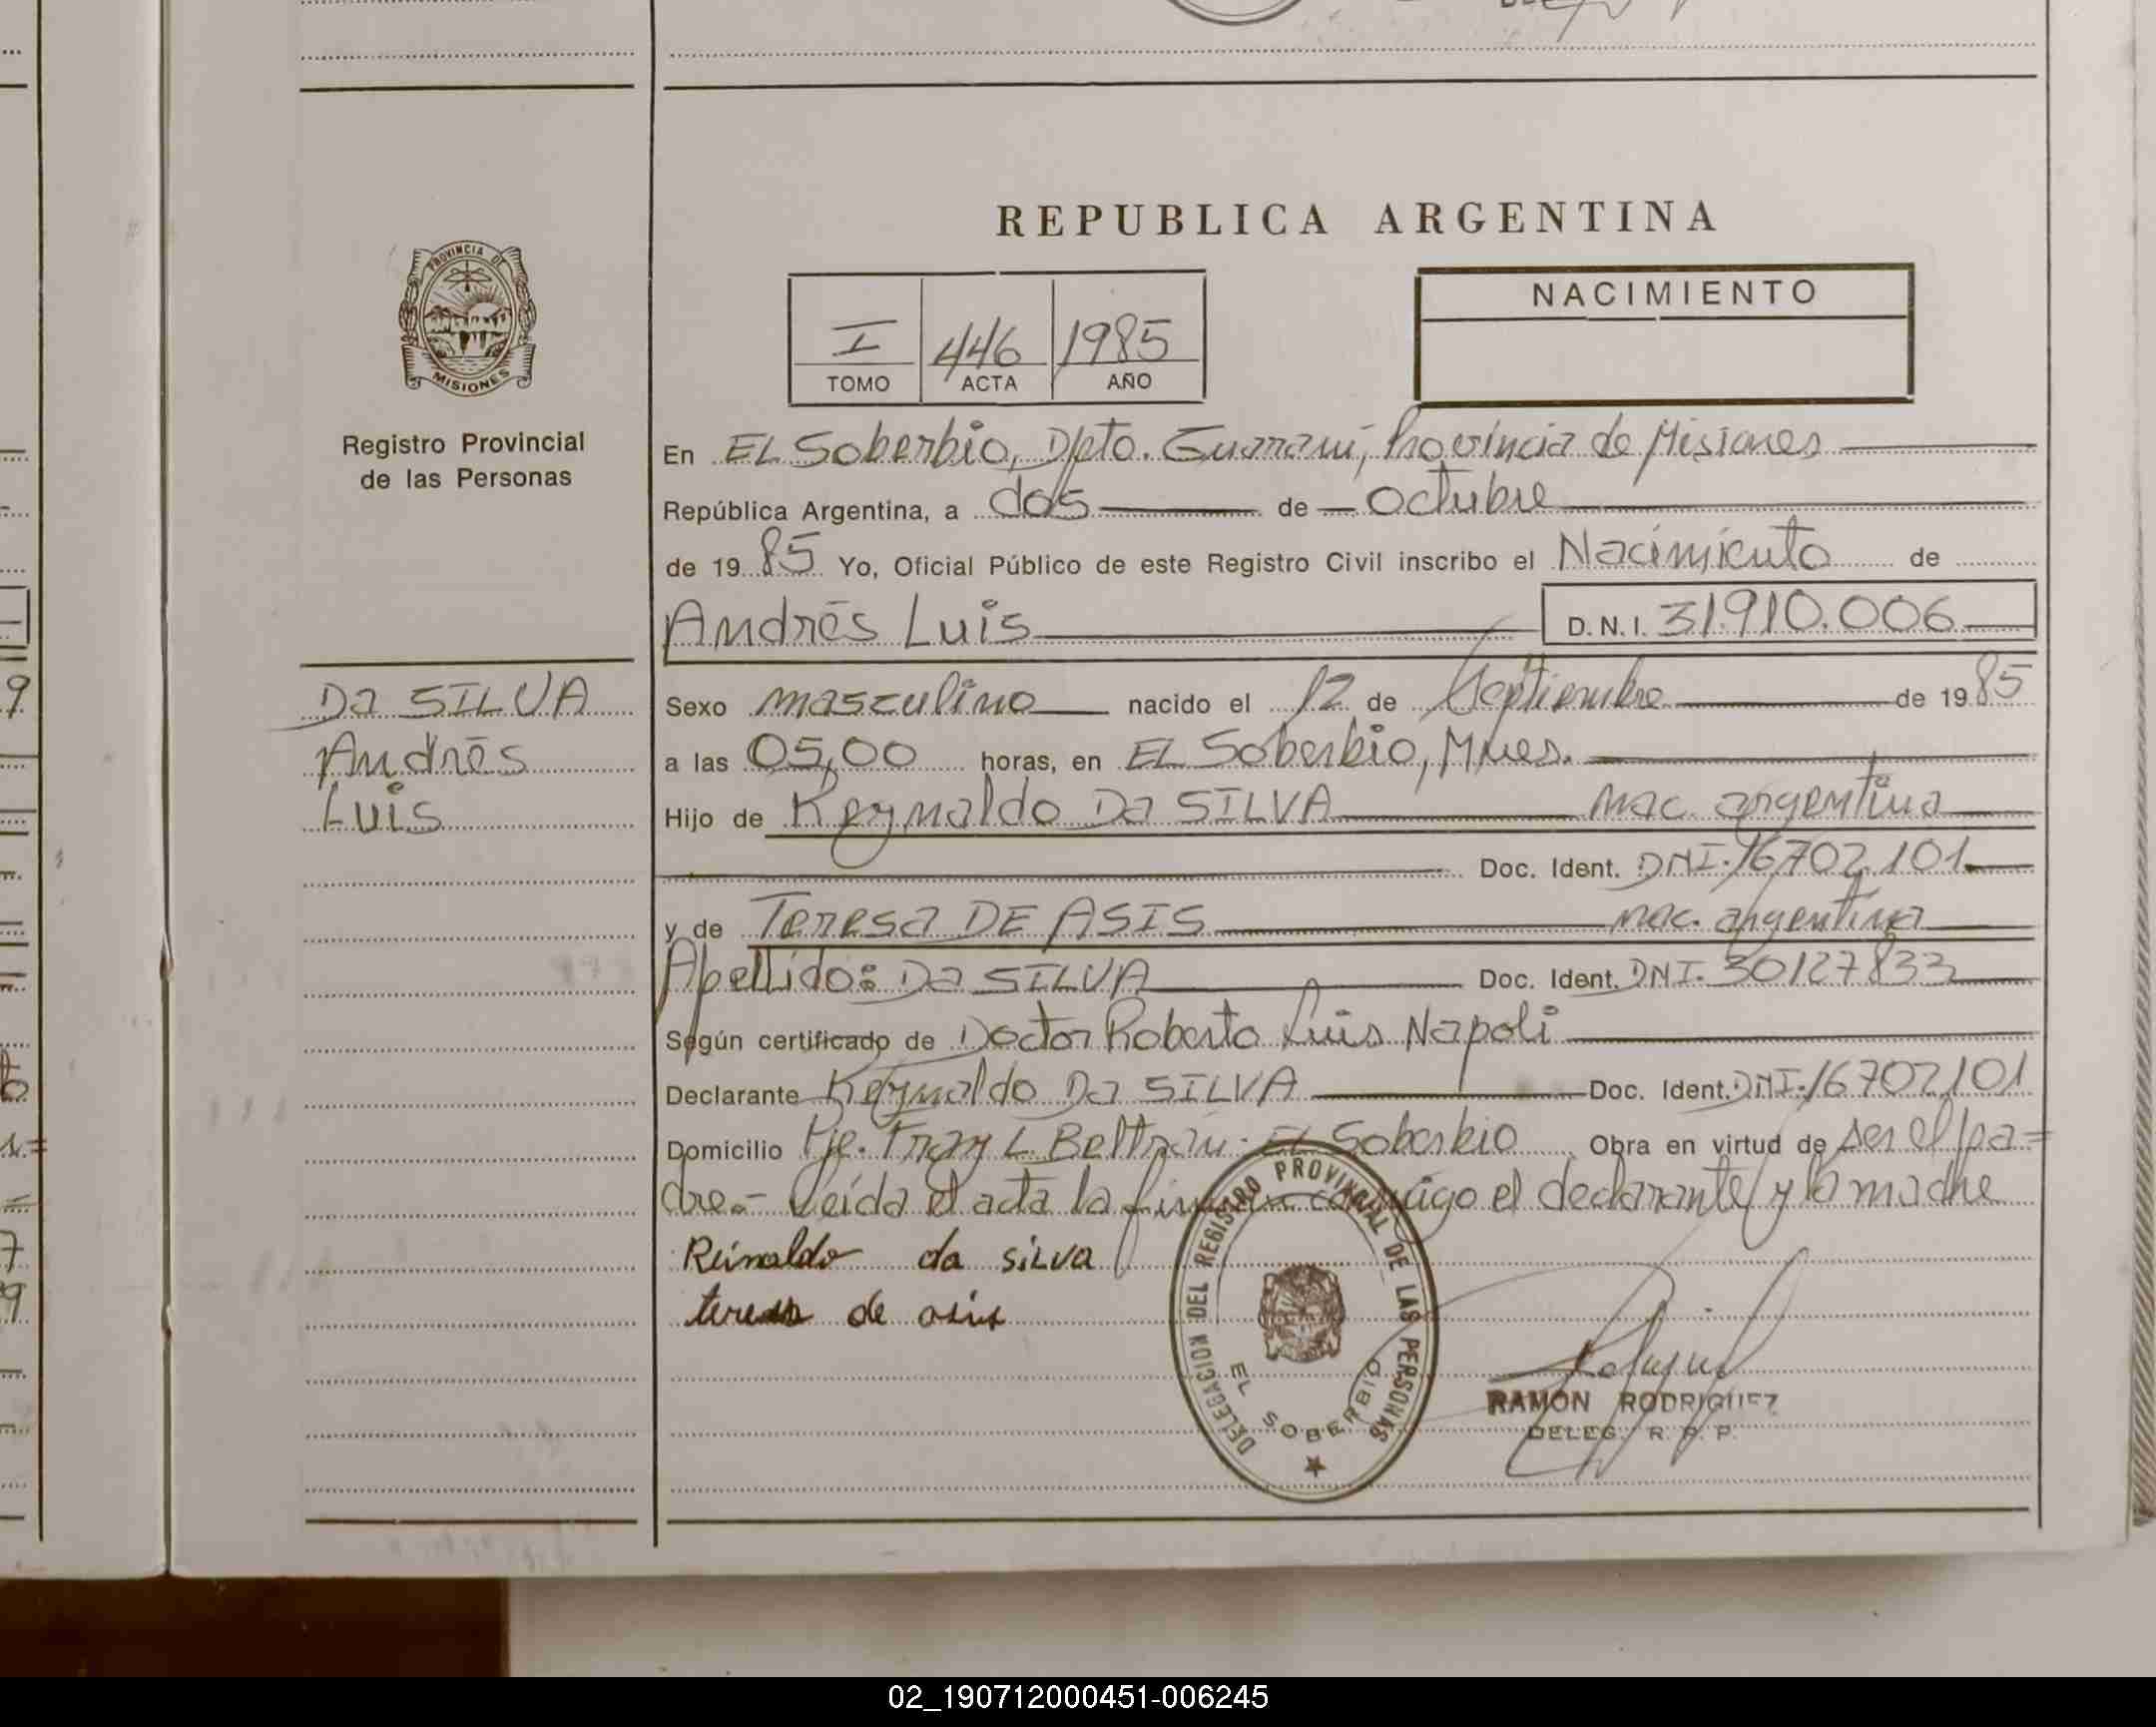 REPUBLICA ARGENTINA
PROVINCIA DE
MISIONES
Registro Provincial
de las Personas
I 446 1985
TOMO ACTA AÑO
NACIMIENTO
En EL Soberbio, Dpto. Guaraní, Provincia de Misiones
República Argentina, a dos de octubre
de 1985 Yo, Oficial Público de este Registro Civil inscribo el Nacimiento de
Andrés Luis D.N.I. 31.910.006
Da SILVA
Andrés
Luis
Sexo masculino nacido el 12 de Septiembre de 1985
a las 05,00 horas, en EL Soberbio, Mnes.
Hijo de Reynaldo Da SILVA nac. argentina
Doc. Ident. DNI. 16702101
y de Teresa DE ASIS nac. argentina
Apellido: Da SILVA Doc. Ident. DNI. 30127833
Según certificado de Doctor Roberto Luis Napoli
Declarante Reynaldo Da SILVA Doc. Ident. DNI. 16702101
Domicilio Pje. Fray L. Beltrán - EL Soberbio Obra en virtud de ser el pa=
dre.- Leída el acta la firman conmigo el declarante y la madre
Reinaldo da silva
teresa de asis
DELEGACION DEL REGISTRO PROVINCIAL DE LAS PERSONAS
EL SOBERBIO
RAMON RODRIGUEZ
DELEG. R. P. P.
02_190712000451-006245